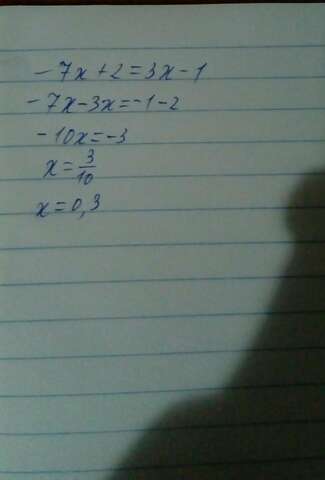 -7x+2=3x-1
-7x-3x=-1-2
-10x=-3
x=3/10
x=0,3